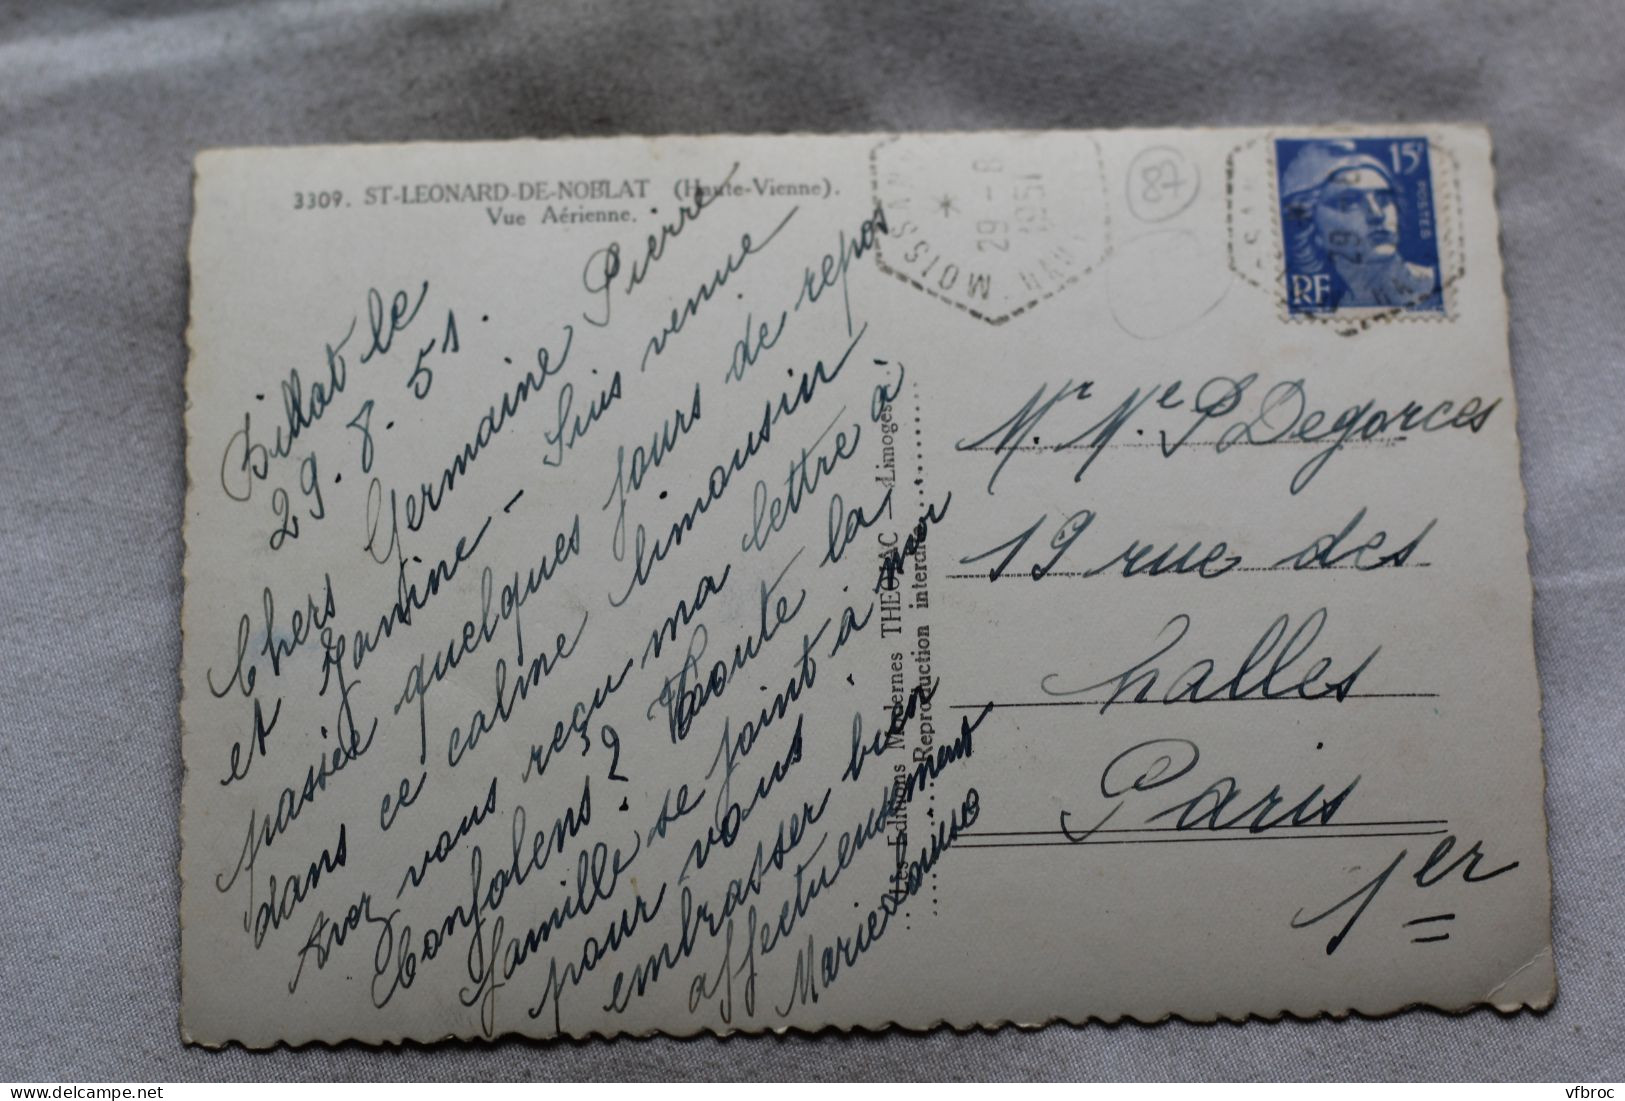 3309. ST-LEONARD-DE-NOBLAT (Haute-Vienne).
Vue Aérienne.
Billat le
29.8.51.
Chers Germaine Pierre
et Janine - Suis venue
passée quelques jours de repos
dans ce calme limousin
Avez vous reçu ma lettre à
Confolens? Toute la
famille se joint à moi
pour vous
embrasser bien
affectueusement
Marie Louise
Les Editions Modernes THEOJAC - Limoges.
Reproduction interdite
MOISSANN
29 - 8
1951
87
15F
POSTES
RF
29
Mr. Me P Degorces
19 rue des
halles
Paris
1er
vfbroc